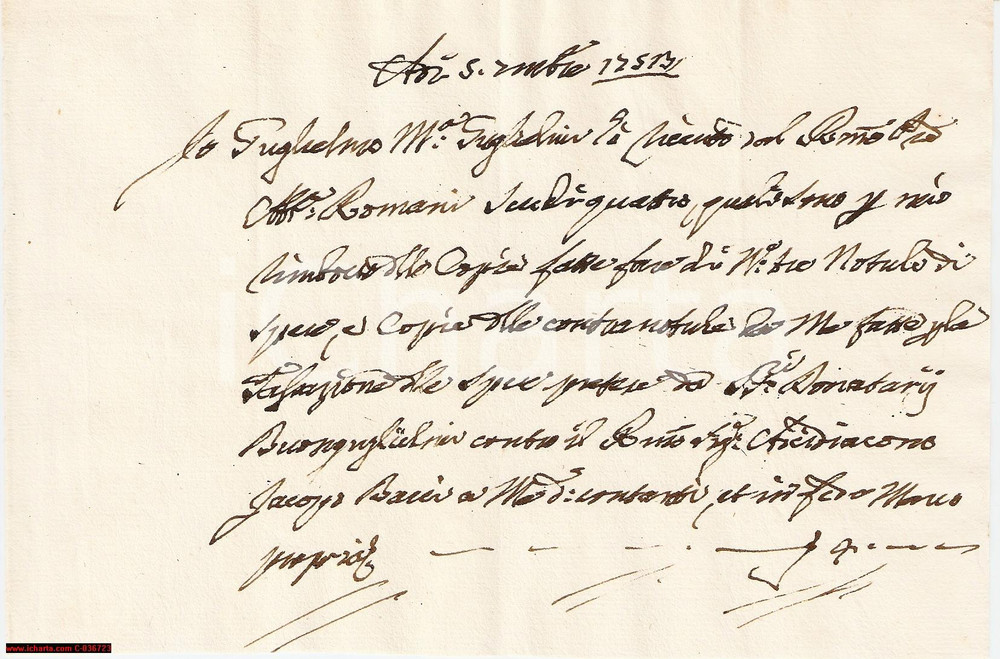 Adì 5. 9mbre 1751
Io Guglielmo M.ª Guglielmi hò riceuto dal Rmo
Ab.e Romani Scudi quattro, quali sono p mio
rimborso delle Copie fatte fare di N.º tre Notule di
spese, e Copie delle contranotule da Me fatte p la
Tassazione delle spese pretese da SS.ri Donatarij
Buonguglielmi contro il Rmo Sig.r Arcidiacono
Jacopo Bacci a Me d.i contanti, et in fede Mano
propria
il charta
www.icharta.com C-036723